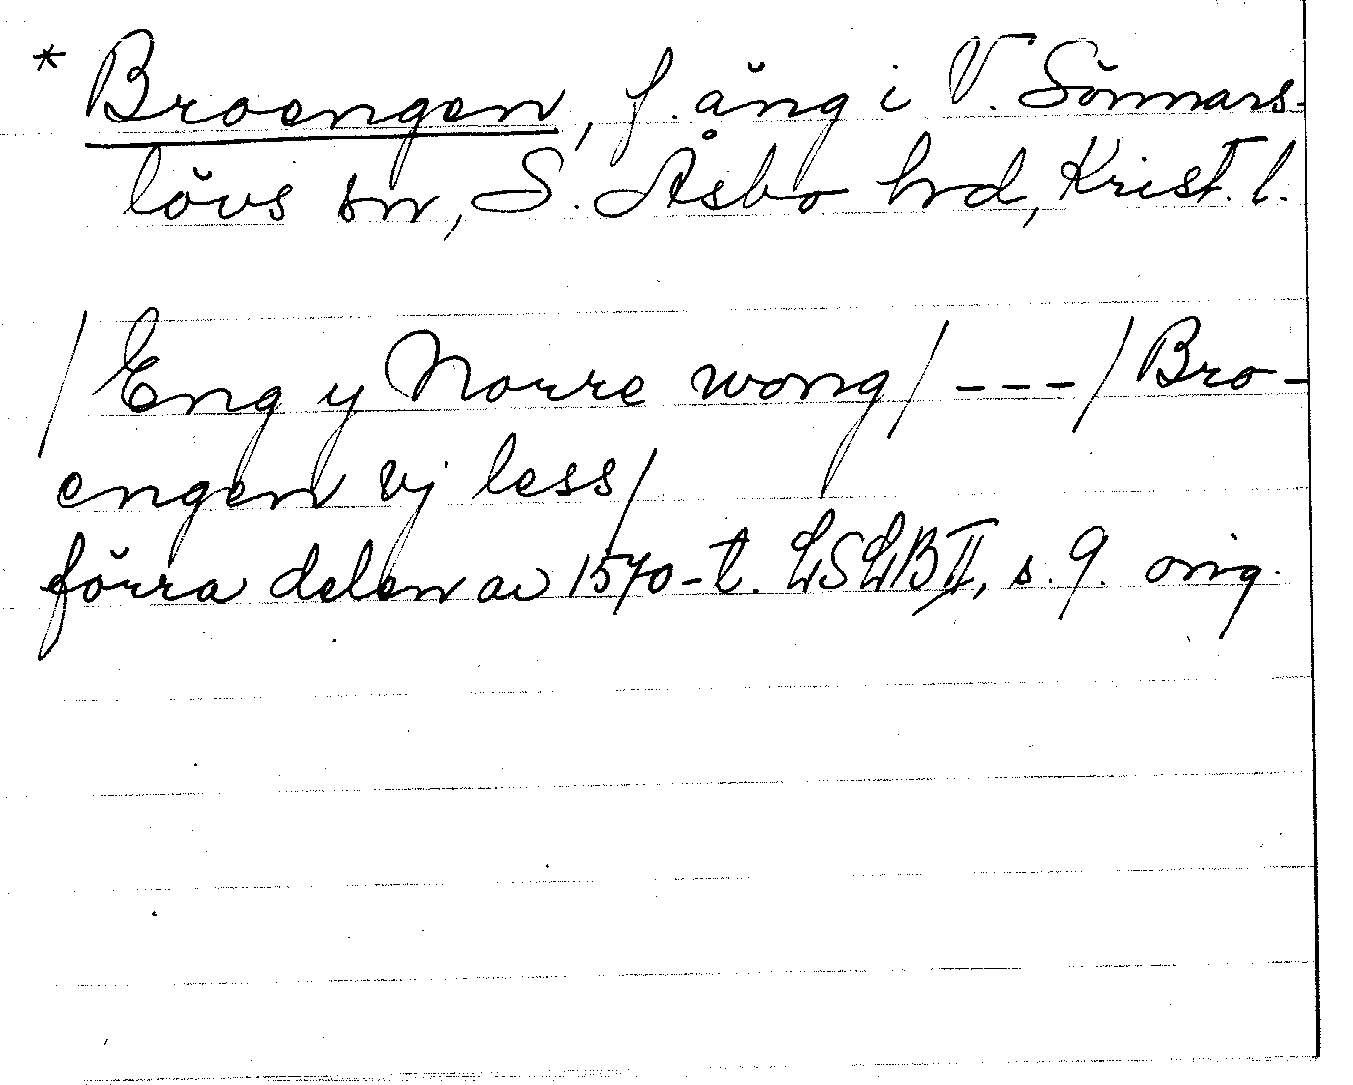 * Broengen, f. äng i V. Sönnars-
lövs sn, S. Åsbo hrd, Krist. l.
/ Eng y Norre wong / --- / Bro-
engen vj less /
förra delen av 1570-t. LSLB II, s. 9. orig.